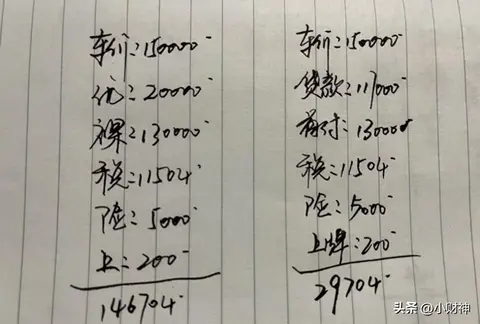 车价:150000
优:20000
裸:130000
税:11504
险:5000
上:200
146704
车价:150000
贷款:117000
首付:13000
税:11504
险:5000
上牌:200
29704
头条 @小财神